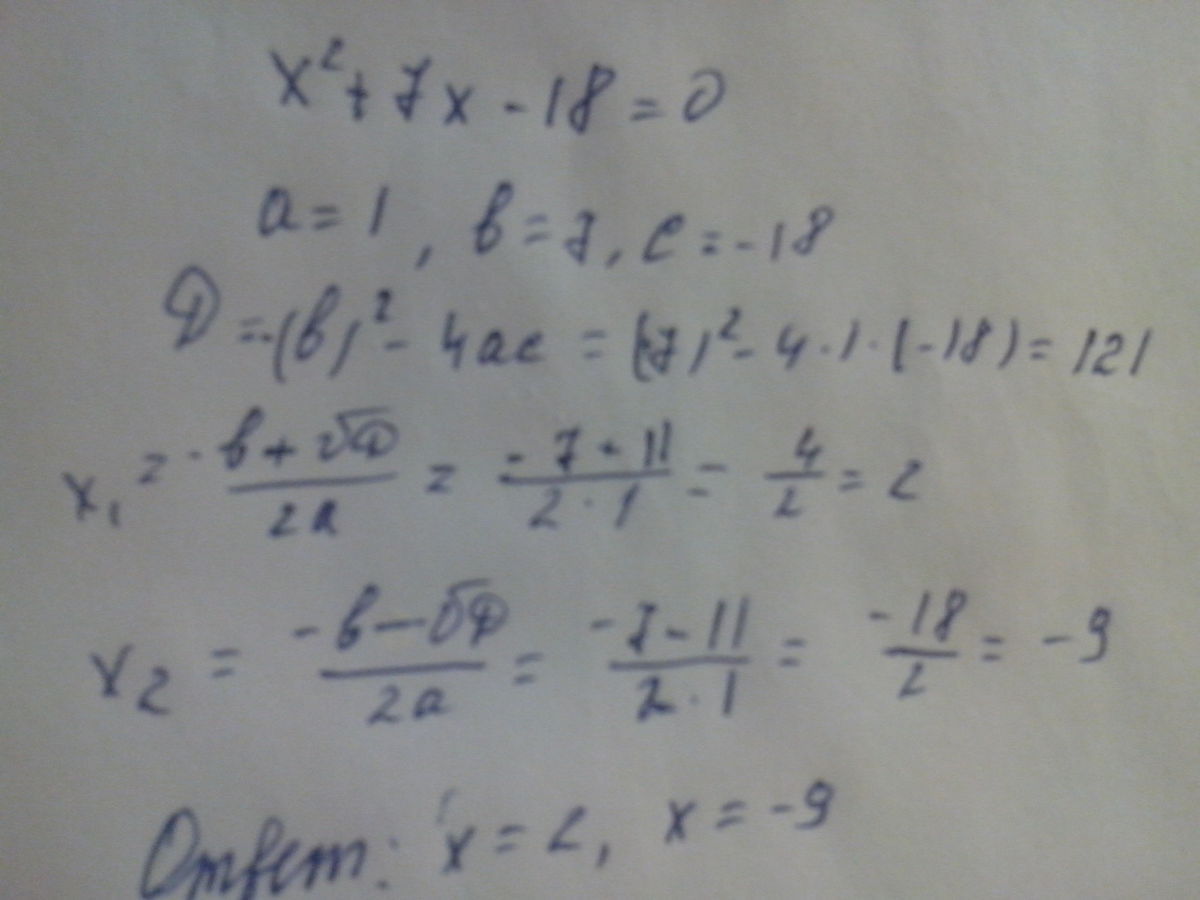 x² + 7x - 18 = 0
a = 1, в = 7, c = -18
D = -(в)² - 4ac = (-7)² - 4 · 1 · (-18) = 121
x₁ = (-в + √D)/(2a) = (-7 + 11)/(2 · 1) = 4/2 = 2
x₂ = (-в - √D)/(2a) = (-7 - 11)/(2 · 1) = (-18)/2 = -9
Ответ: x = 2, x = -9